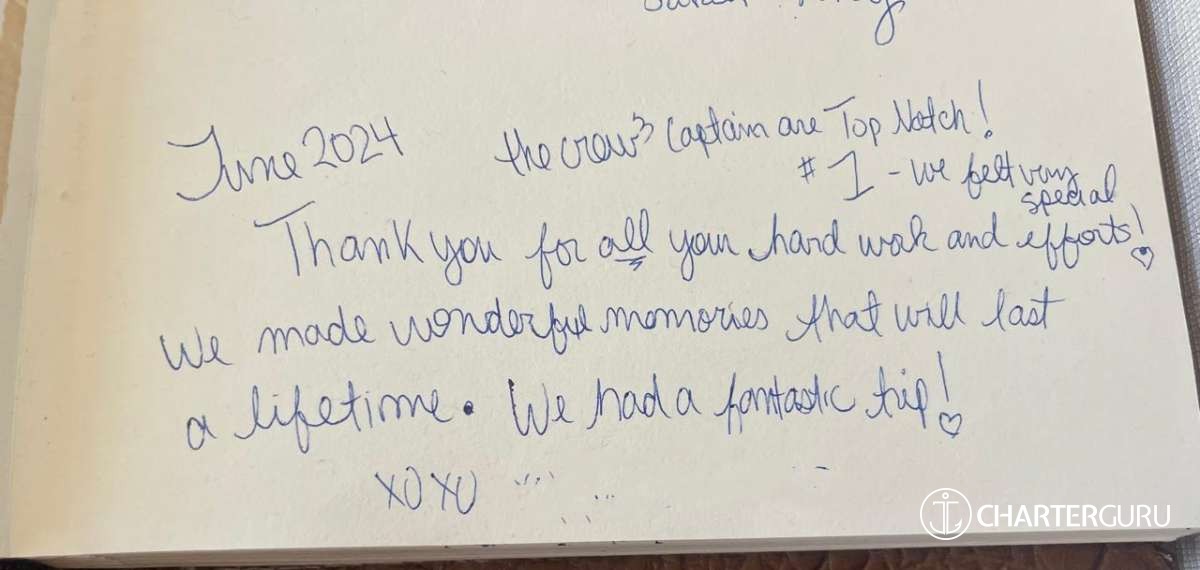 June 2024 the crew & Captain are Top Notch!
#1 - we felt very
special
Thank you for all your hard work and efforts! ♡
We made wonderful memories that will last
a lifetime. We had a fantastic trip! ♡
XOXO
CHARTERGURU